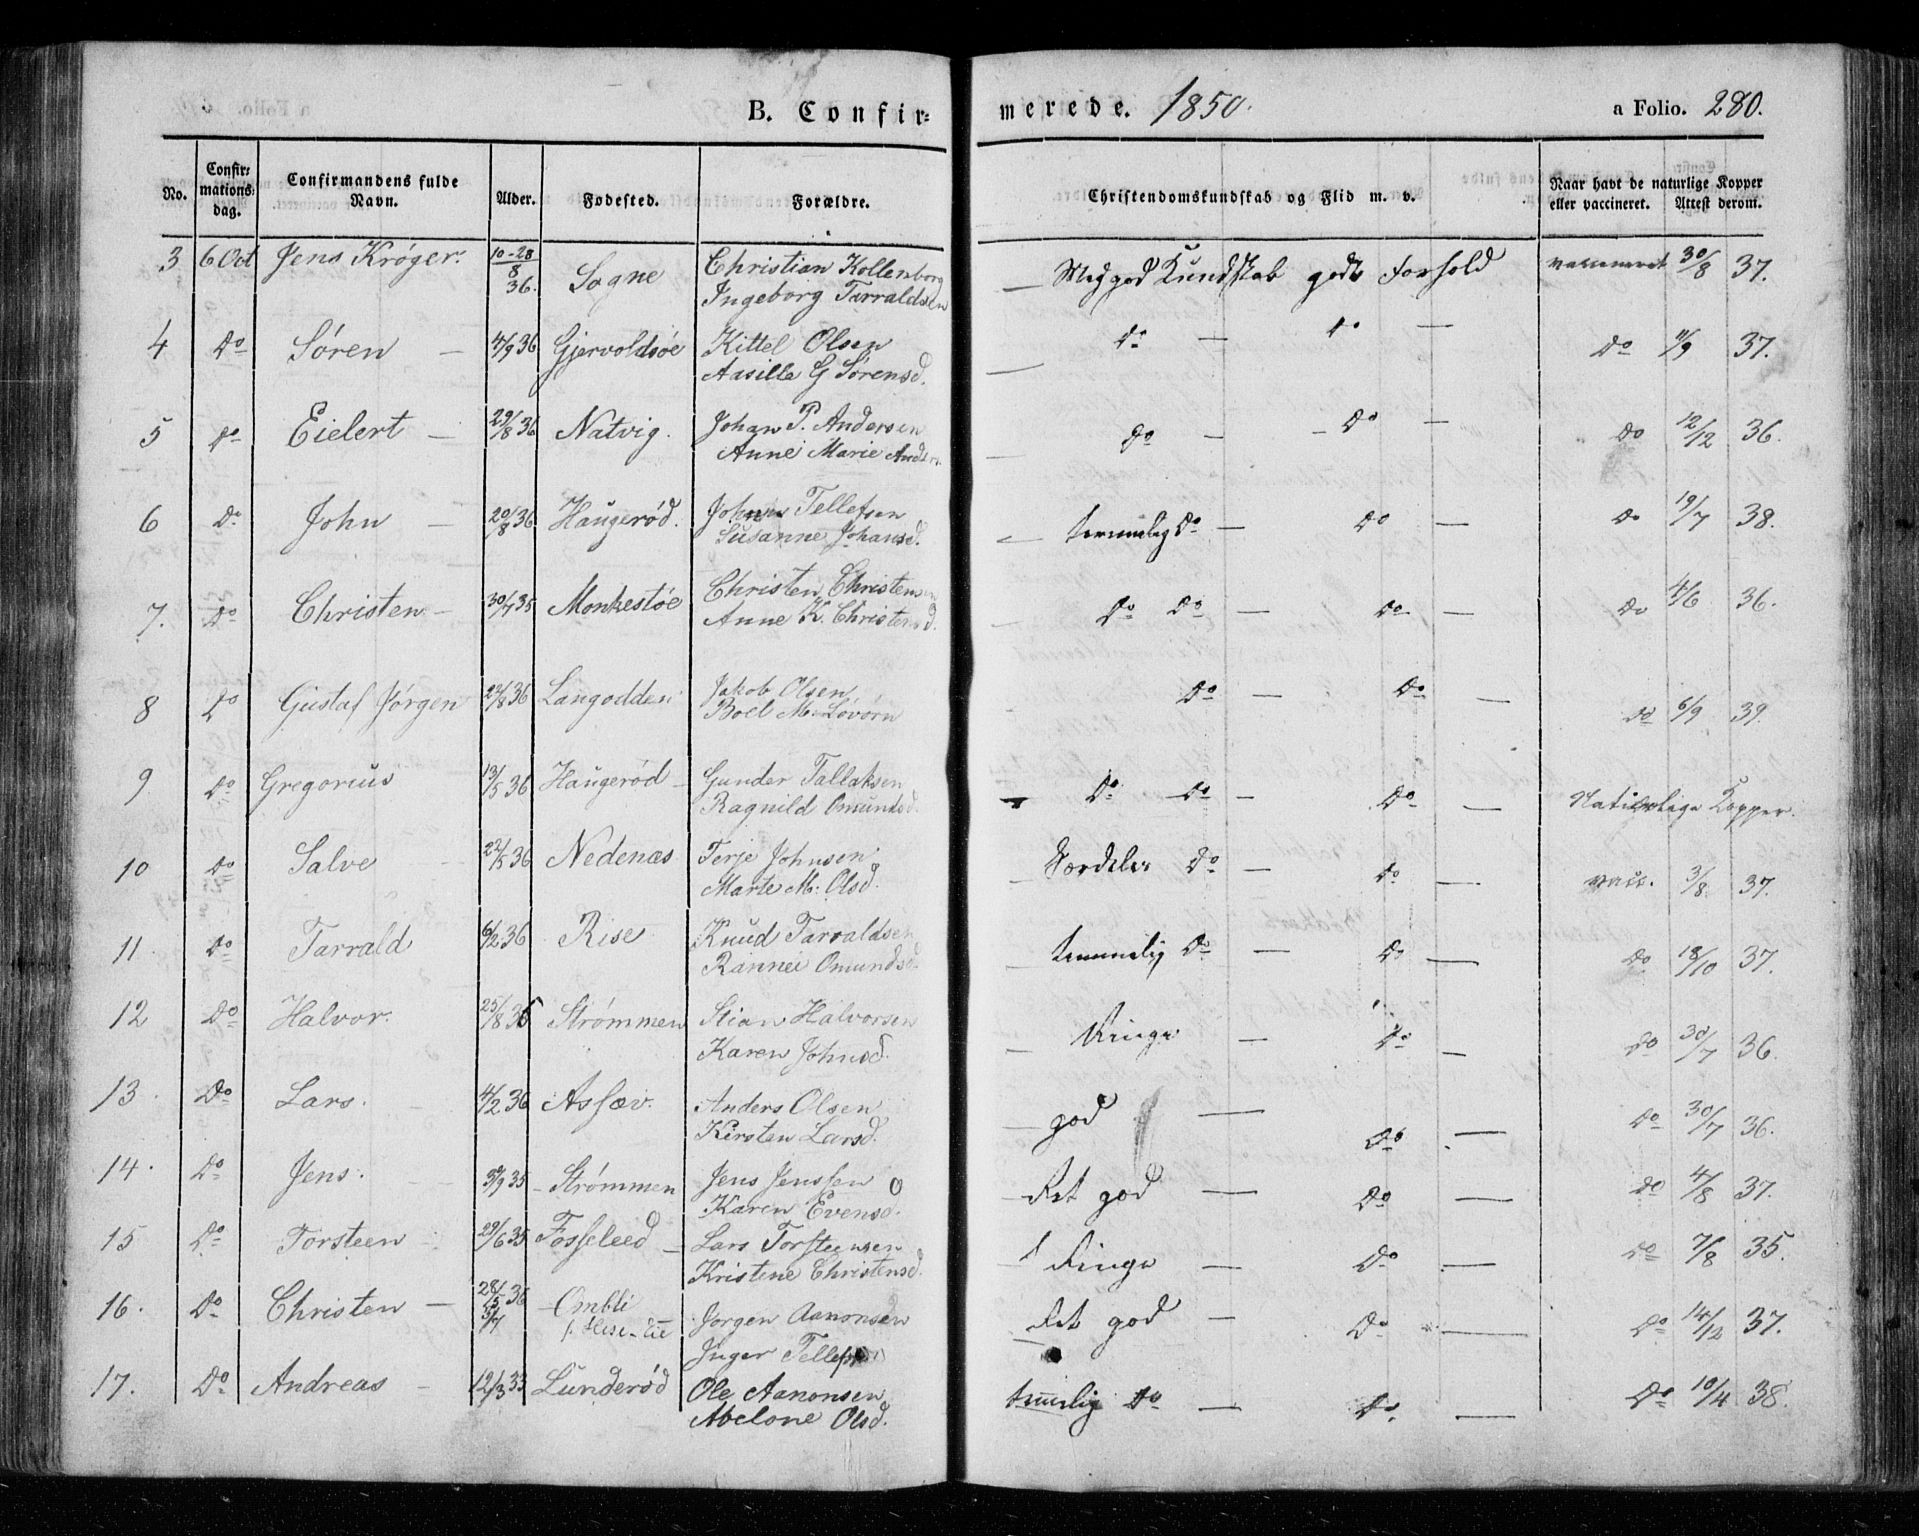 B. Confir= merede. 1850. a Folio. 280.
No. | Confir=mations=dag. | Confirmandens fulde Navn. | Alder. | Fødested. | Forældre. | Christendomskundskab og Flid m. v. | Naar havt de naturlige Kopper eller vaccineret. Attest derom.
3 6 Oct Jens Krøger. 10-28/8 36. Sogne Christian Kollenborg — Meg god Kundskab godt Forhold vaccineret 30/8 37.
Ingeborg Tarraldsen
4 Do Søren — 4/9 36 Gjervoldsøe Kittel Olsen — do — do — Do 11/9 37.
Aasille G Sørensd.
5 Do Eielert — 29/8 36 Natvig. Johan P. Andersen do — — Do — Do 12/12 36.
Anne Marie Anders
6 Do John — 20/8 36 Haugerød. Tellefsen — temmelig Do — Do — Do 19/7 38.
Susanne Johansd.
7. Do Christen — 30/7 35 Monkestøe Christen Christensen — Do Do — Do — Do 4/6 36.
Anne K. Christensd.
8 Do Gustaf Jørgen 22/8 36 Langodden Jakob Olsen Do — Do — Do 6/9 39.
Boel M. Løvorn
9 Do Gregorius 13/5 36 Haugerød — Gunder Tallaksen — Do Do — Do — Naturlige Kopper.
Ragnild Omundsd.
10 Do Salve 22/5 36 Nedenæs Terje Johnsen — Særdeles Do — Do — vacc. 3/8 37.
Marte M. Olsd.
11. Do Tarrald 6/2 36 Rise Knud Tarraldsen — temmelig Do — Do — Do 18/10 37.
Rannei Omundsd
12 Do Halvor. 25/8 36 Strømmen Stian Halvorsen — Ringe — Do — Do 30/7 36.
Karen Johnsd.
13. Do Lars. 4/2 36 Assæv. Anders Olsen — god — Do — Do 30/7 36.
Kirsten Larsd.
14. Do Jens. 3/9 35 — Strømmen Jens Jenssen — Ret god — Do — Do 4/8 37.
Karen Evensd.
15 Do Torsteen 29/6 35 Fosseleed — Lars Torsteensen Ringe — Do — Do 7/8 35.
Kristene Christensd.
16. Do Christen — 28/5 36 — Ombli Jorgen Aanonsen — Ret god — Do — Do 14/12 37.
5/7
Inger
17. Do Andreas — 12/3 33 Lunderød Ole Aanonsen temelig Do — Do — Do 10/4 38.
Abelone Olsd.